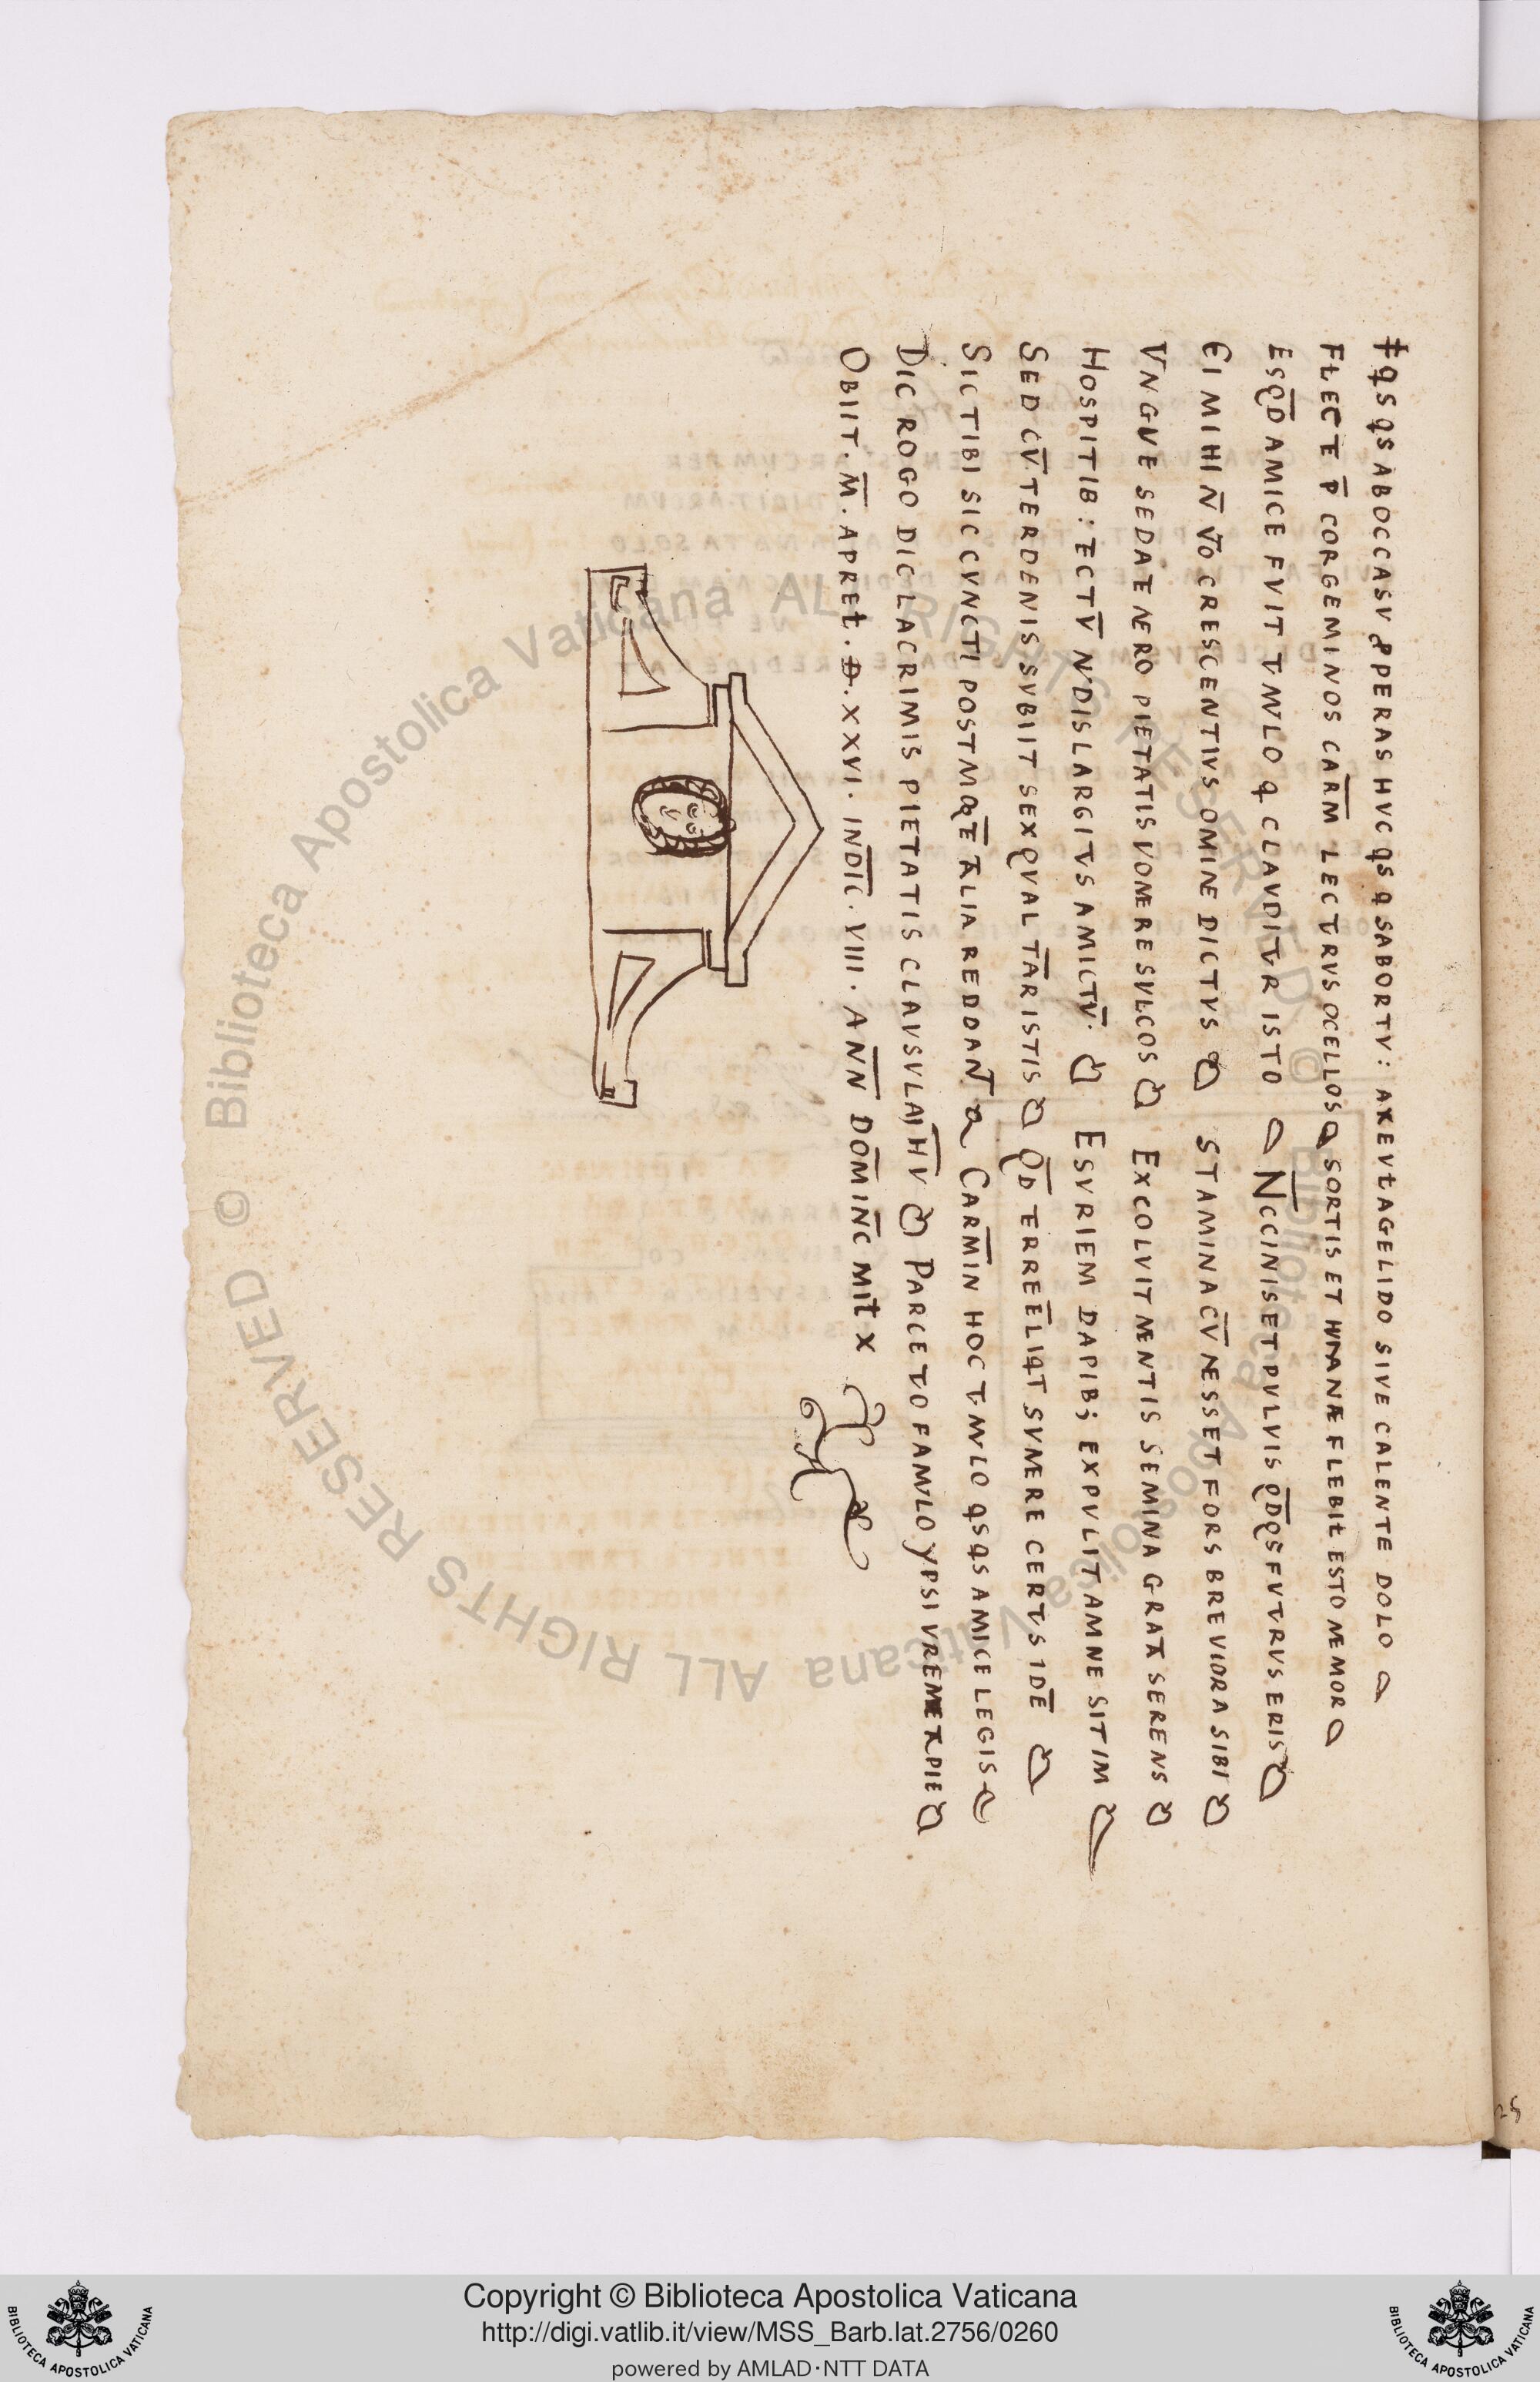 ꟼS ꟼS AB OCCASV ꝐPERAS HVC ꟼS ꟼ SAB ORTV : AXE VŁ A GELIDO SIVE CALENTE DOLO
FLECTE P̄ COR GEMINOS CAR̄M̄ LECTRVS OCELLOS SORTIS ET HVMANÆ FLEBIŁ ESTO MEMOR
ES Q̄D̄ AMICE FVIT TVMVLO ꟼ CLAVDITVR ISTO N̄C CINIS ET PVLVIS Q̄D̄ QS FVTVRVS ERIS
EI MIHI N̄ V̄O CRESCENTIVS OMINE DICTVS STAMINA CV̄ NESSET FORS BREVIORA SIBI
VNGVE SED A TENERO PIETATIS VOMERE SVLCOS EXCOLVIT MENTIS SEMINA GRATA SERENS
HOSPITIB : TECTV̄ NVDIS LARGITVS AMICTV̄ . ESVRIEM DAPIB; EXPVLIT AMNE SITIM
SED CV̄ TER DENIS SVBIIT SEX QVALT̄AR ISTIS Q̄D̄ TERRE Ē LIꟼT SVMERE CERTVS IDĒ
SIC TIBI SIC CVNCTI POSTMOQ̄E TALIA REDDANT CAR̄M̄IN HOC TVMVLO ꟼS ꟼS AMICE LEGIS
DIC ROGO DIC LACRIMIS PIETATIS CLAVSVLA IH̄V̄ PARCE TVO FAMVLO YPSI VREMETA PIE
OBIIT . M̄ . APREŁ . D . XXVI . INDIC̄ . VIII . ANN̄ DOM̄INC̄ MIŁ X
Copyright © Biblioteca Apostolica Vaticana
http://digi.vatlib.it/view/MSS_Barb.lat.2756/0260
powered by AMLAD·NTT DATA